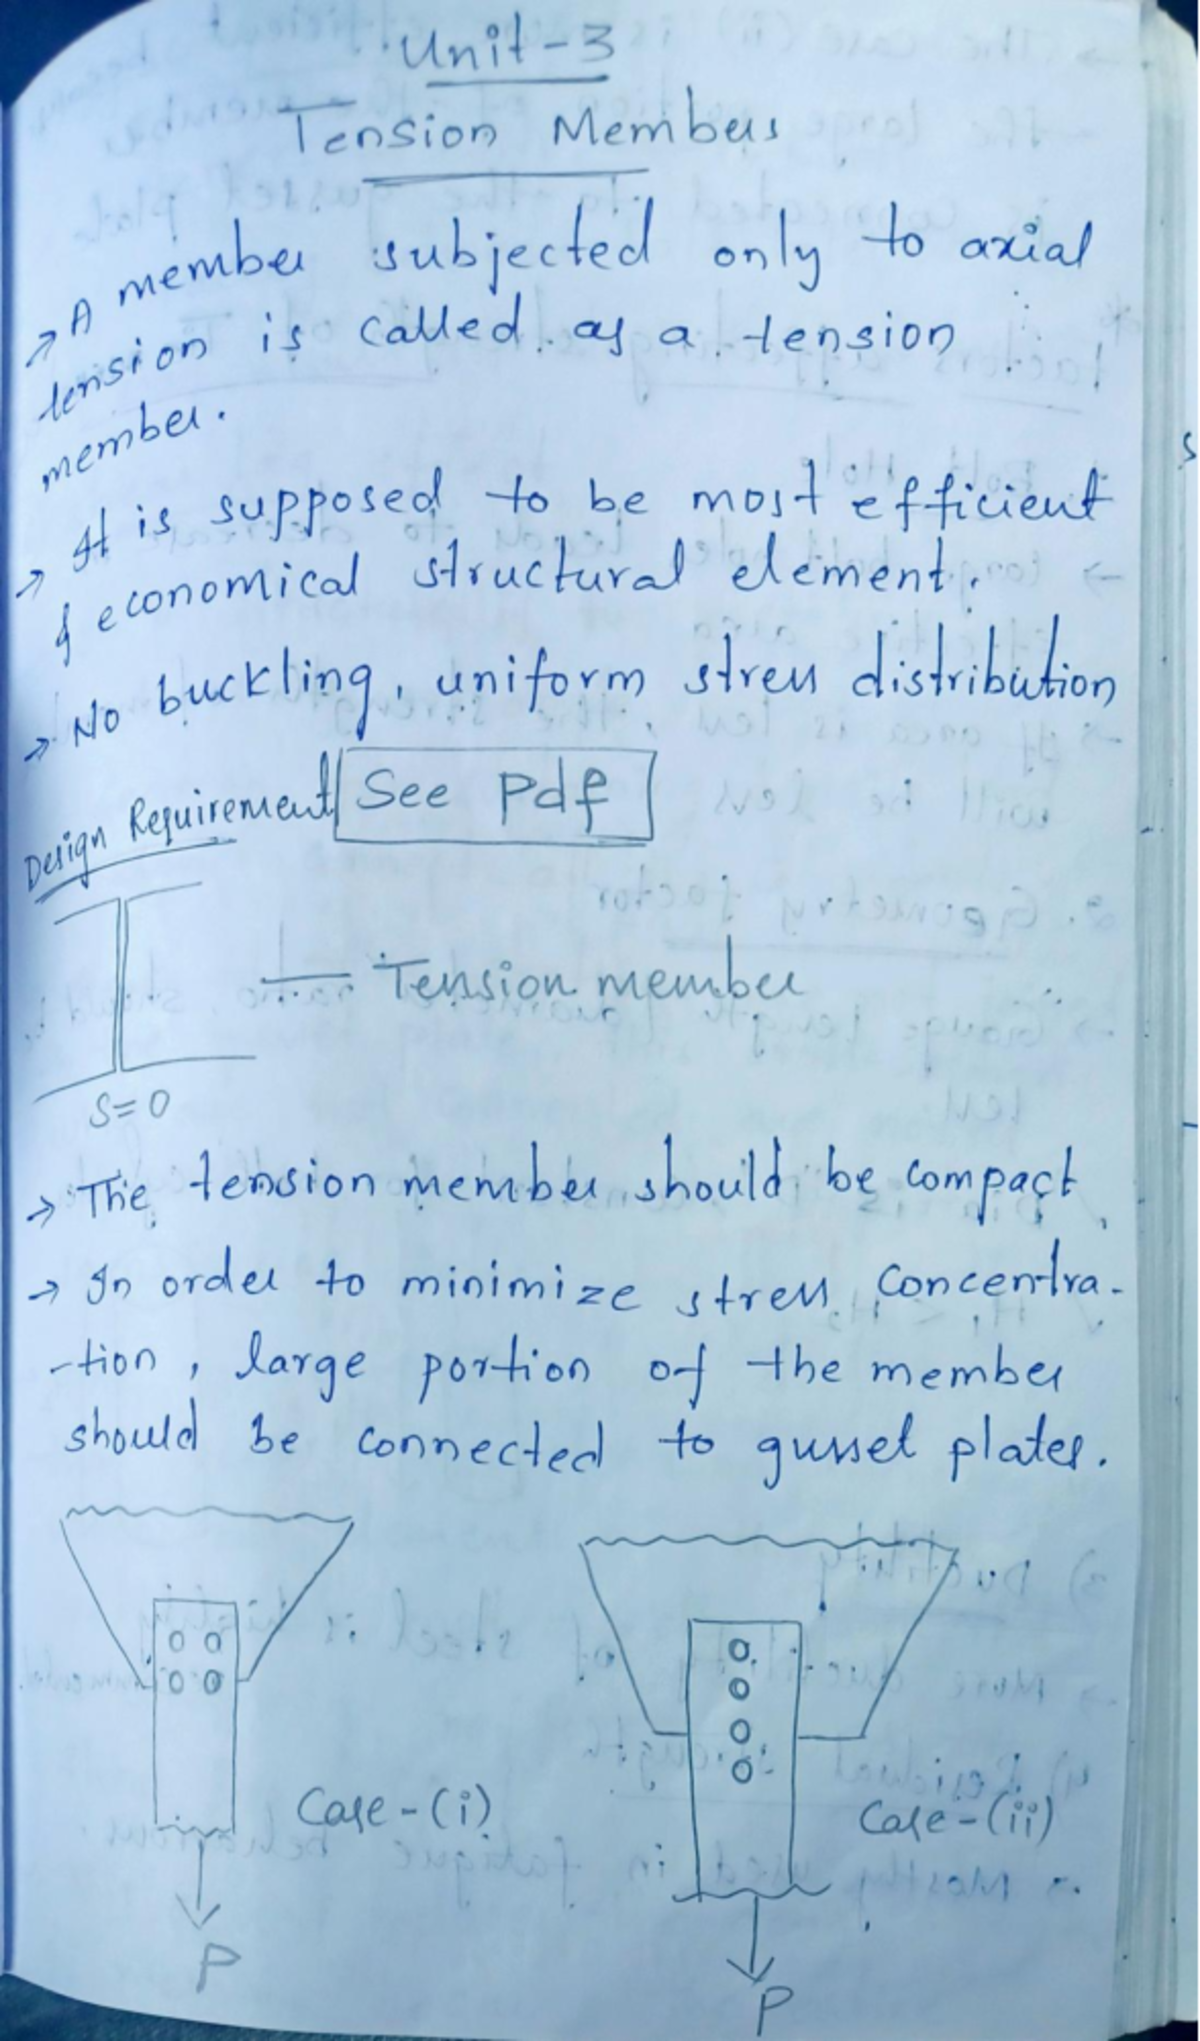 Unit-3
Tension Members
→ A member subjected only to axial
tension is called as a tension
member.
→ It is supposed to be most efficient
& economical structural element.
→ No buckling, uniform stress distribution
Design Requirement See pdf
Tension member
S=0
→ The tension member should be compact
→ In order to minimize stress concentra-
-tion, large portion of the member
should be connected to gusset plates.
Case-(i)
Case-(ii)
P
P